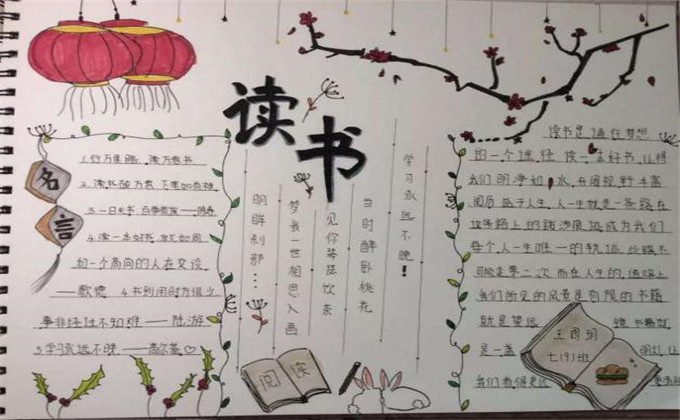 读书
名言
1.行万里路,读万卷书
2.读书破万卷,下笔如有神
3.一日无书,百事荒芜——陈寿
4.读一本好书,就如同
和一个高尚的人在交谈
——歌德 4.书到用时方恨少
事非经过不知难——陆游
5.学习永远不晚——高尔基
学习永远不晚!
当时醉卧桃花
见你琴弦饮东
梦我一世相思入画
明眸刹那…
阅读
读书是通往梦想
的一个途径 读一本好书,让我
们明净如水,开阔视野,丰富
阅历 益于人生,人生就是一条路在
这条路上的跋涉痕迹成为我们
每个人一生唯一的轨迹 此路不
可能走第二次 而在人生的道路上
我们所见的风景是有限的 书籍
就是望远镜 书籍就
是一盏明灯 让
我们看得更远
七(9)班